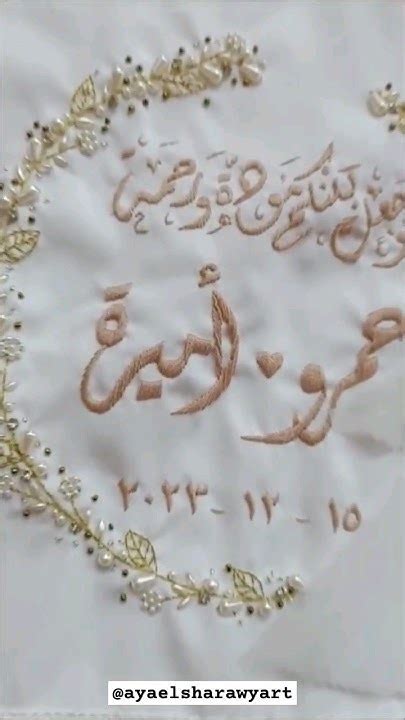 وجعل بينكم مودة ورحمة
عمرو أميرة
١٥ - ١٢ - ٢٠٢٣
@ayaelsharawyart